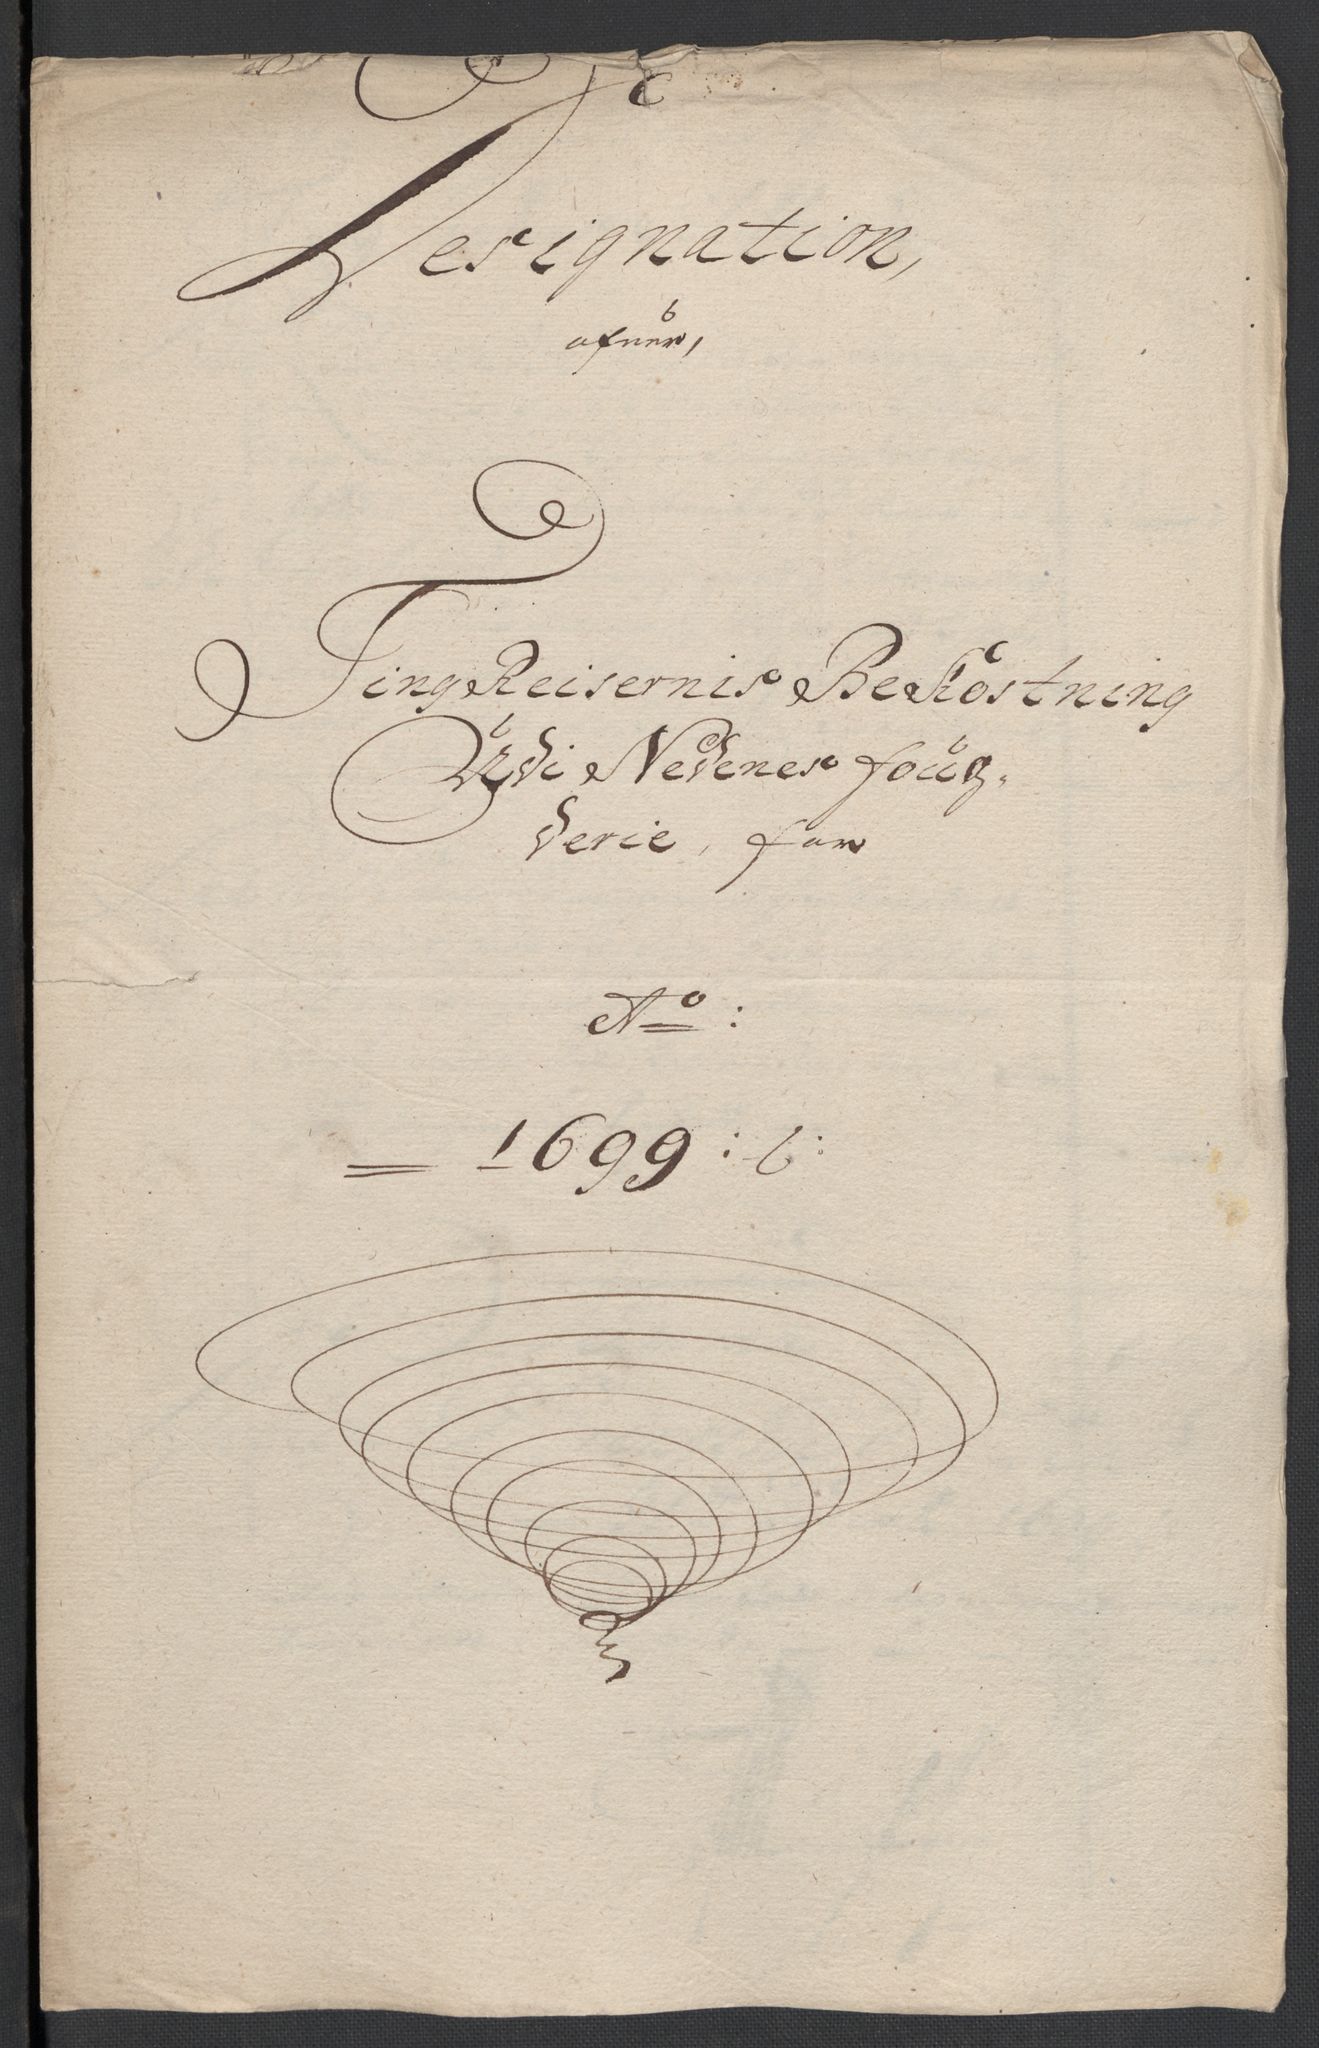 Designation,
ofuer,
Ting Reisernis Bekostning
Udi Nedenes foug,
derie, for
Ao:
1699: